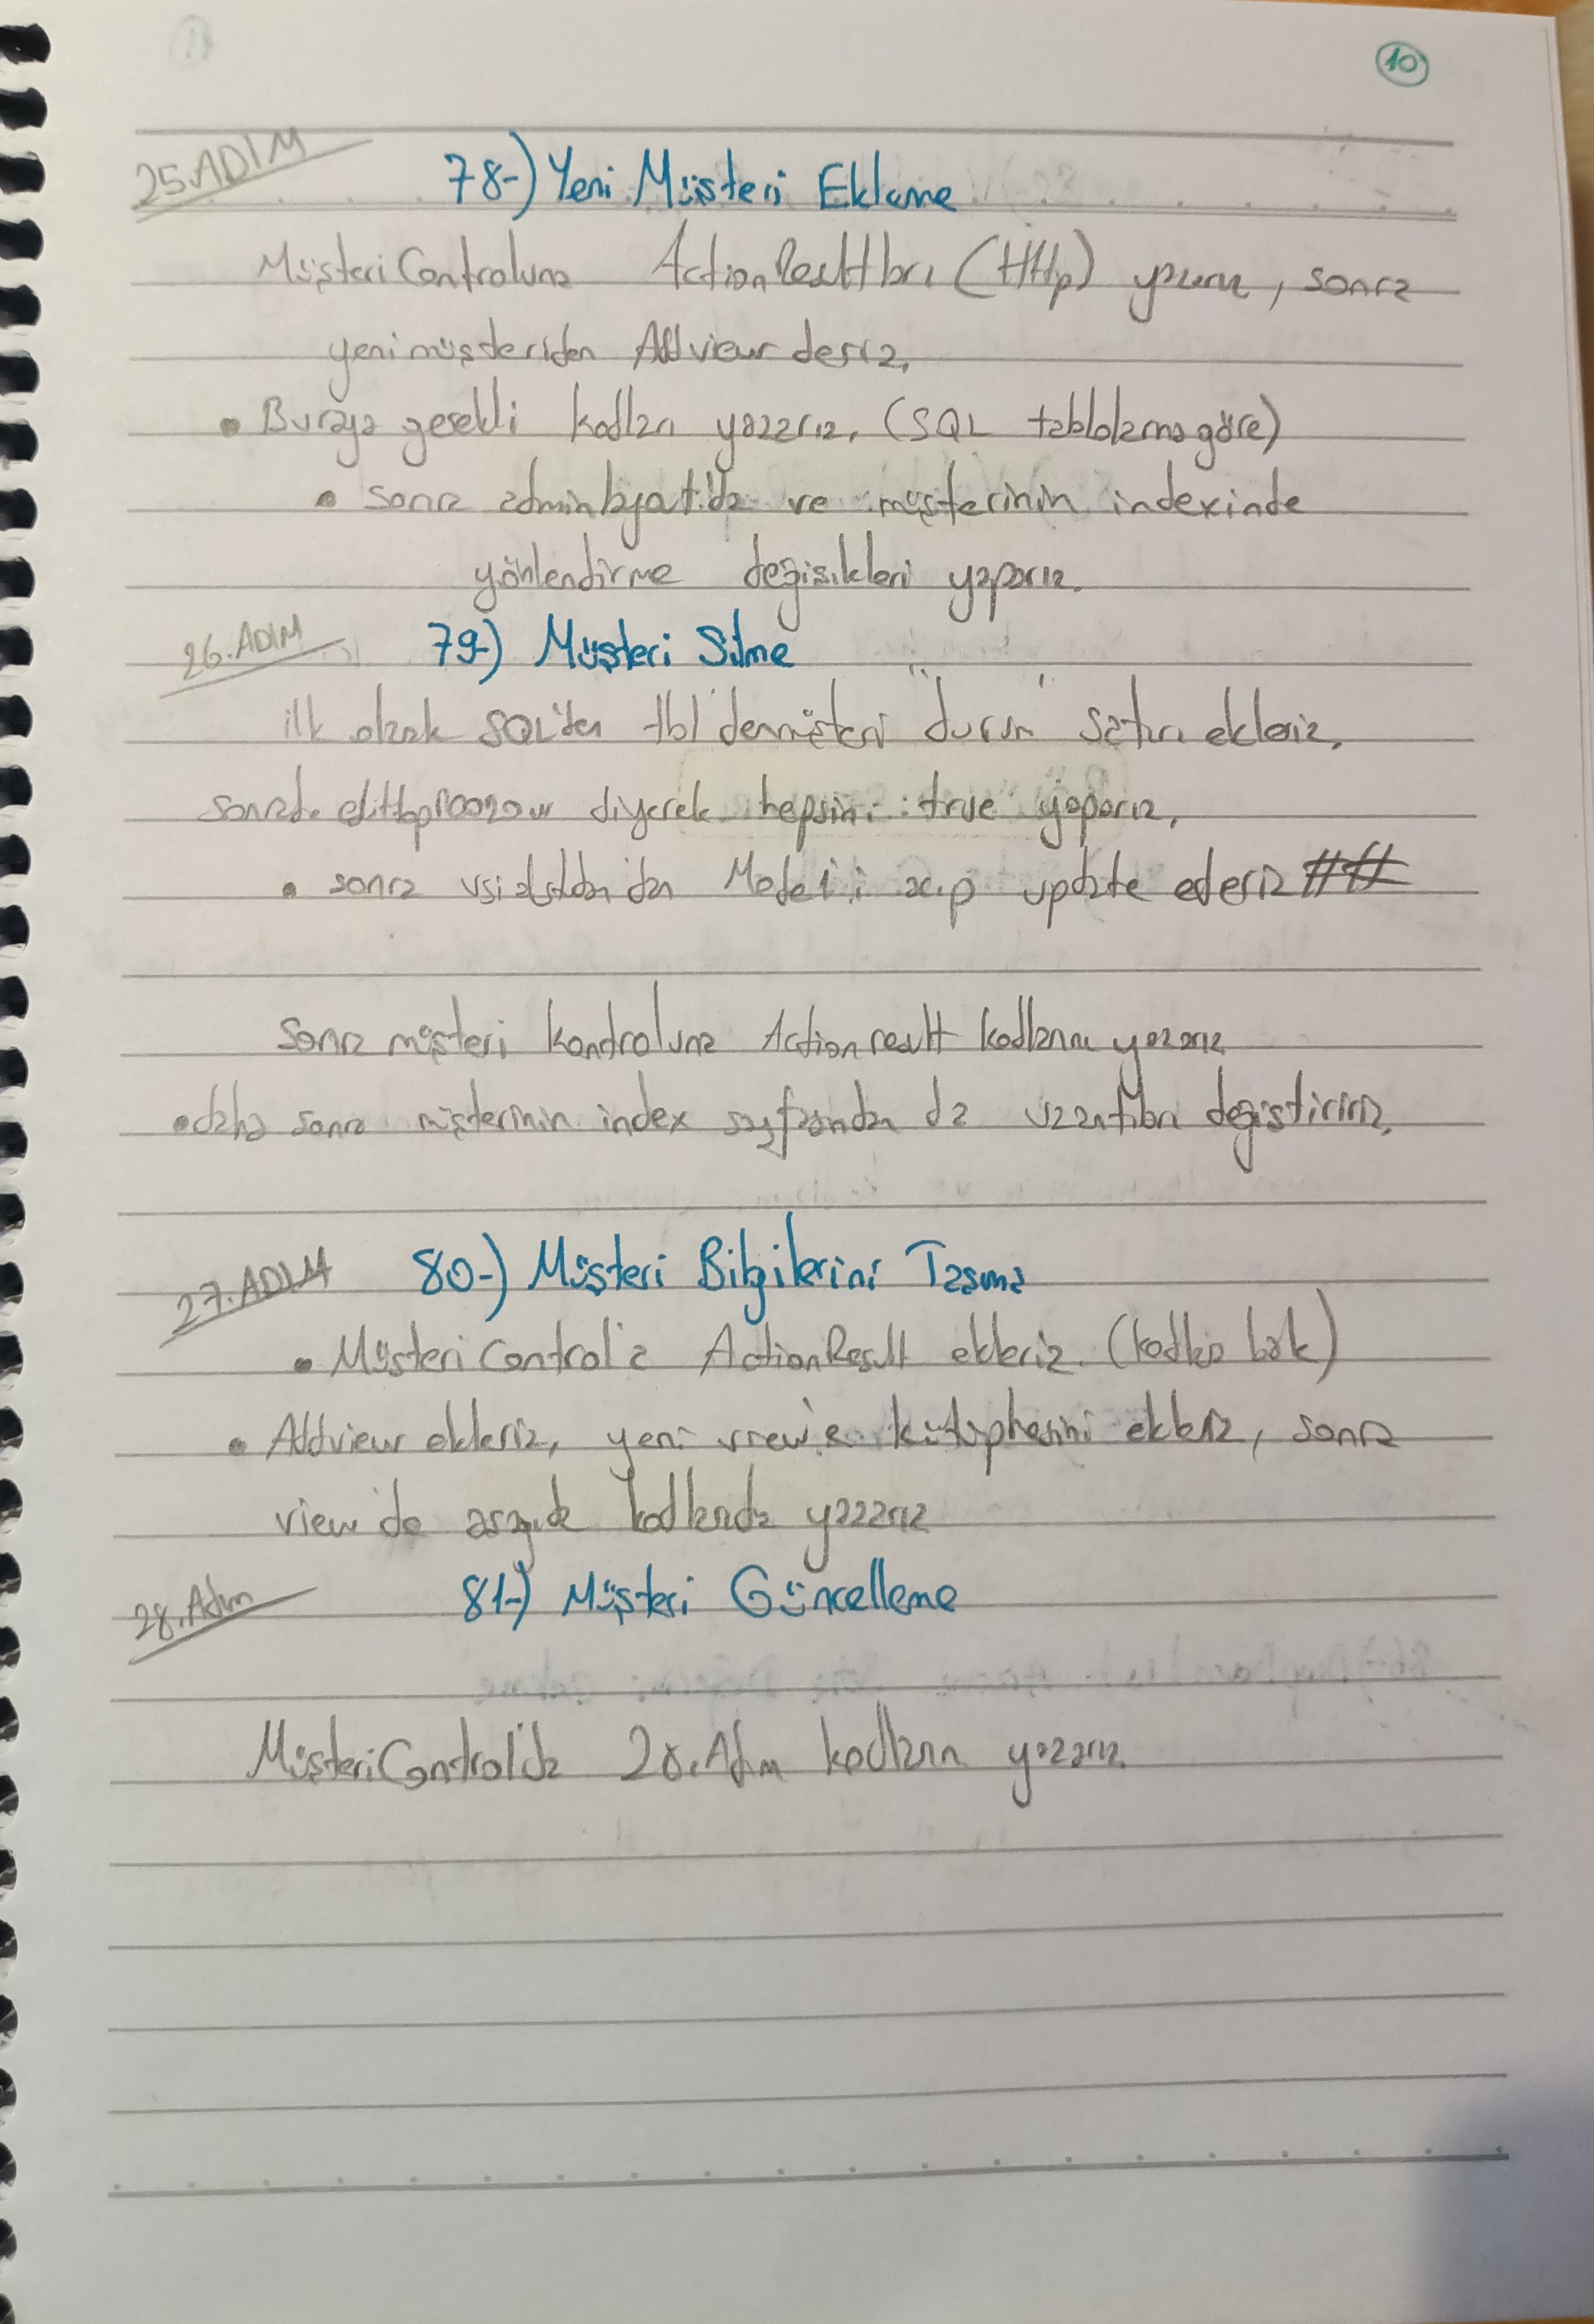 10
25.ADIM
78-) Yeni Müşteri Ekleme
MüşteriControluna ActionResultları (Http) yazarız, sonra
yenimüşteriden Addview deriz.
• Buraya gerekli kodları yazarız, (SQL tablolarına göre)
• sonra adminlayout'da ve müşterinin indexinde
yönlendirme değişikleri yaparız.
26.ADIM
79-) Müşteri Silme
ilk olarak SQL'den tbl'denmüşteri "durum" satırı ekleriz.
sonrada edittop200row diyerek hepsini true yaparız.
• sonra Modeli açıp update ederiz
sonra müşteri kontroluna Actionresult kodlarını yazarız
• daha sonra müşterinin index sayfasından da uzantıları değiştiririz.
27.ADIM
80-) Müşteri Bilgilerini Taşıma
• MüşteriControl'a ActionResult ekleriz. (kodlara bak)
• Addview ekleriz, yeni view'e kütüphesini ekleriz, sonra
view'de aşağıda kodlarıda yazarız
28.Adım
81-) Müşteri Güncelleme
MüşteriControl'da 28.Adım kodların yazarız.